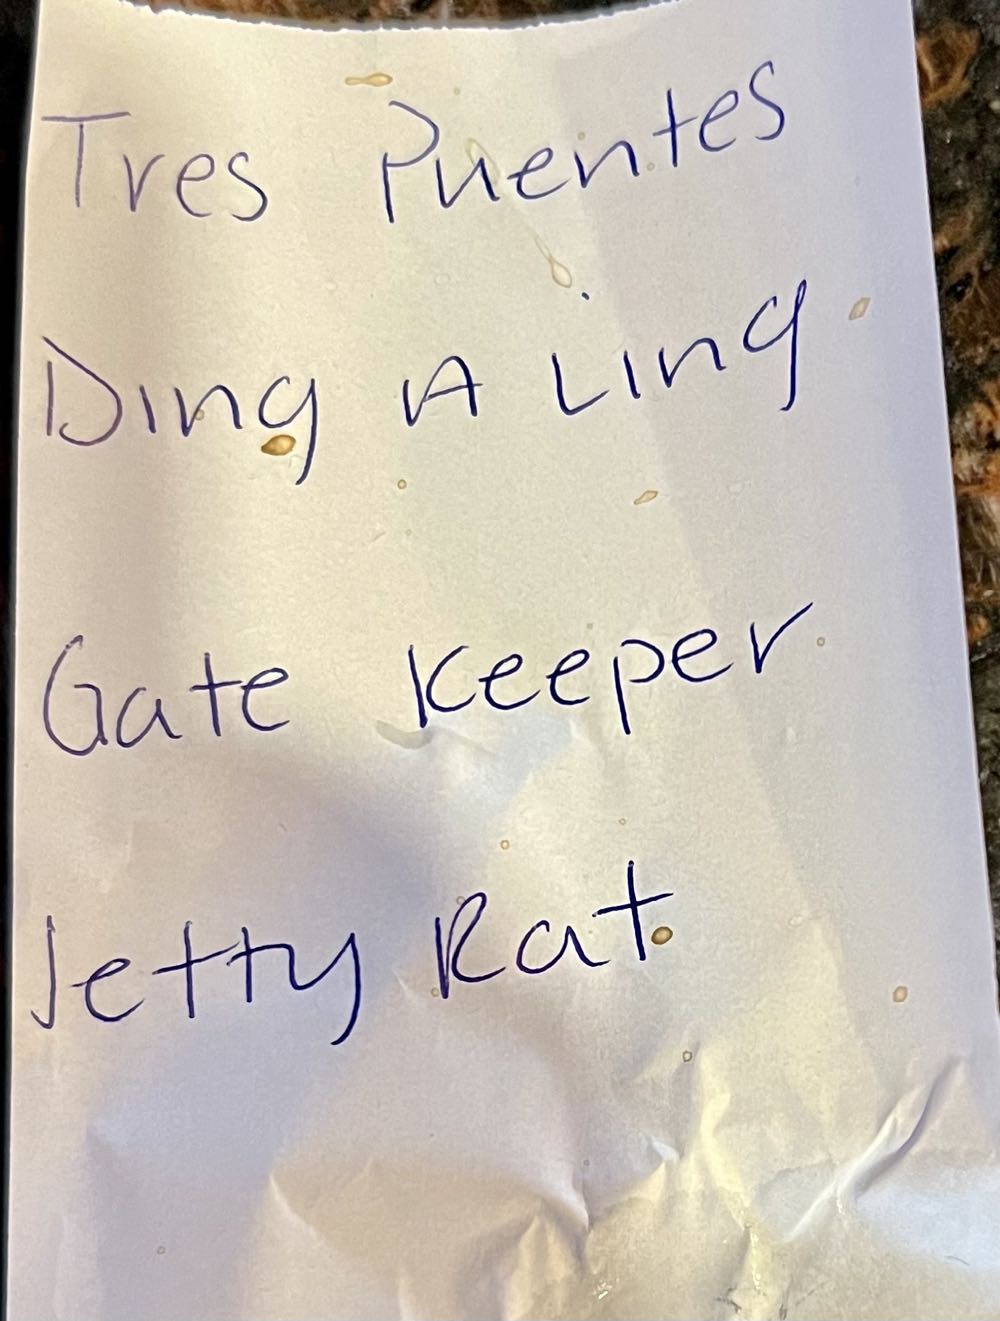 Tres Puentes
Ding A Ling
Gate Keeper
Jetty Rat